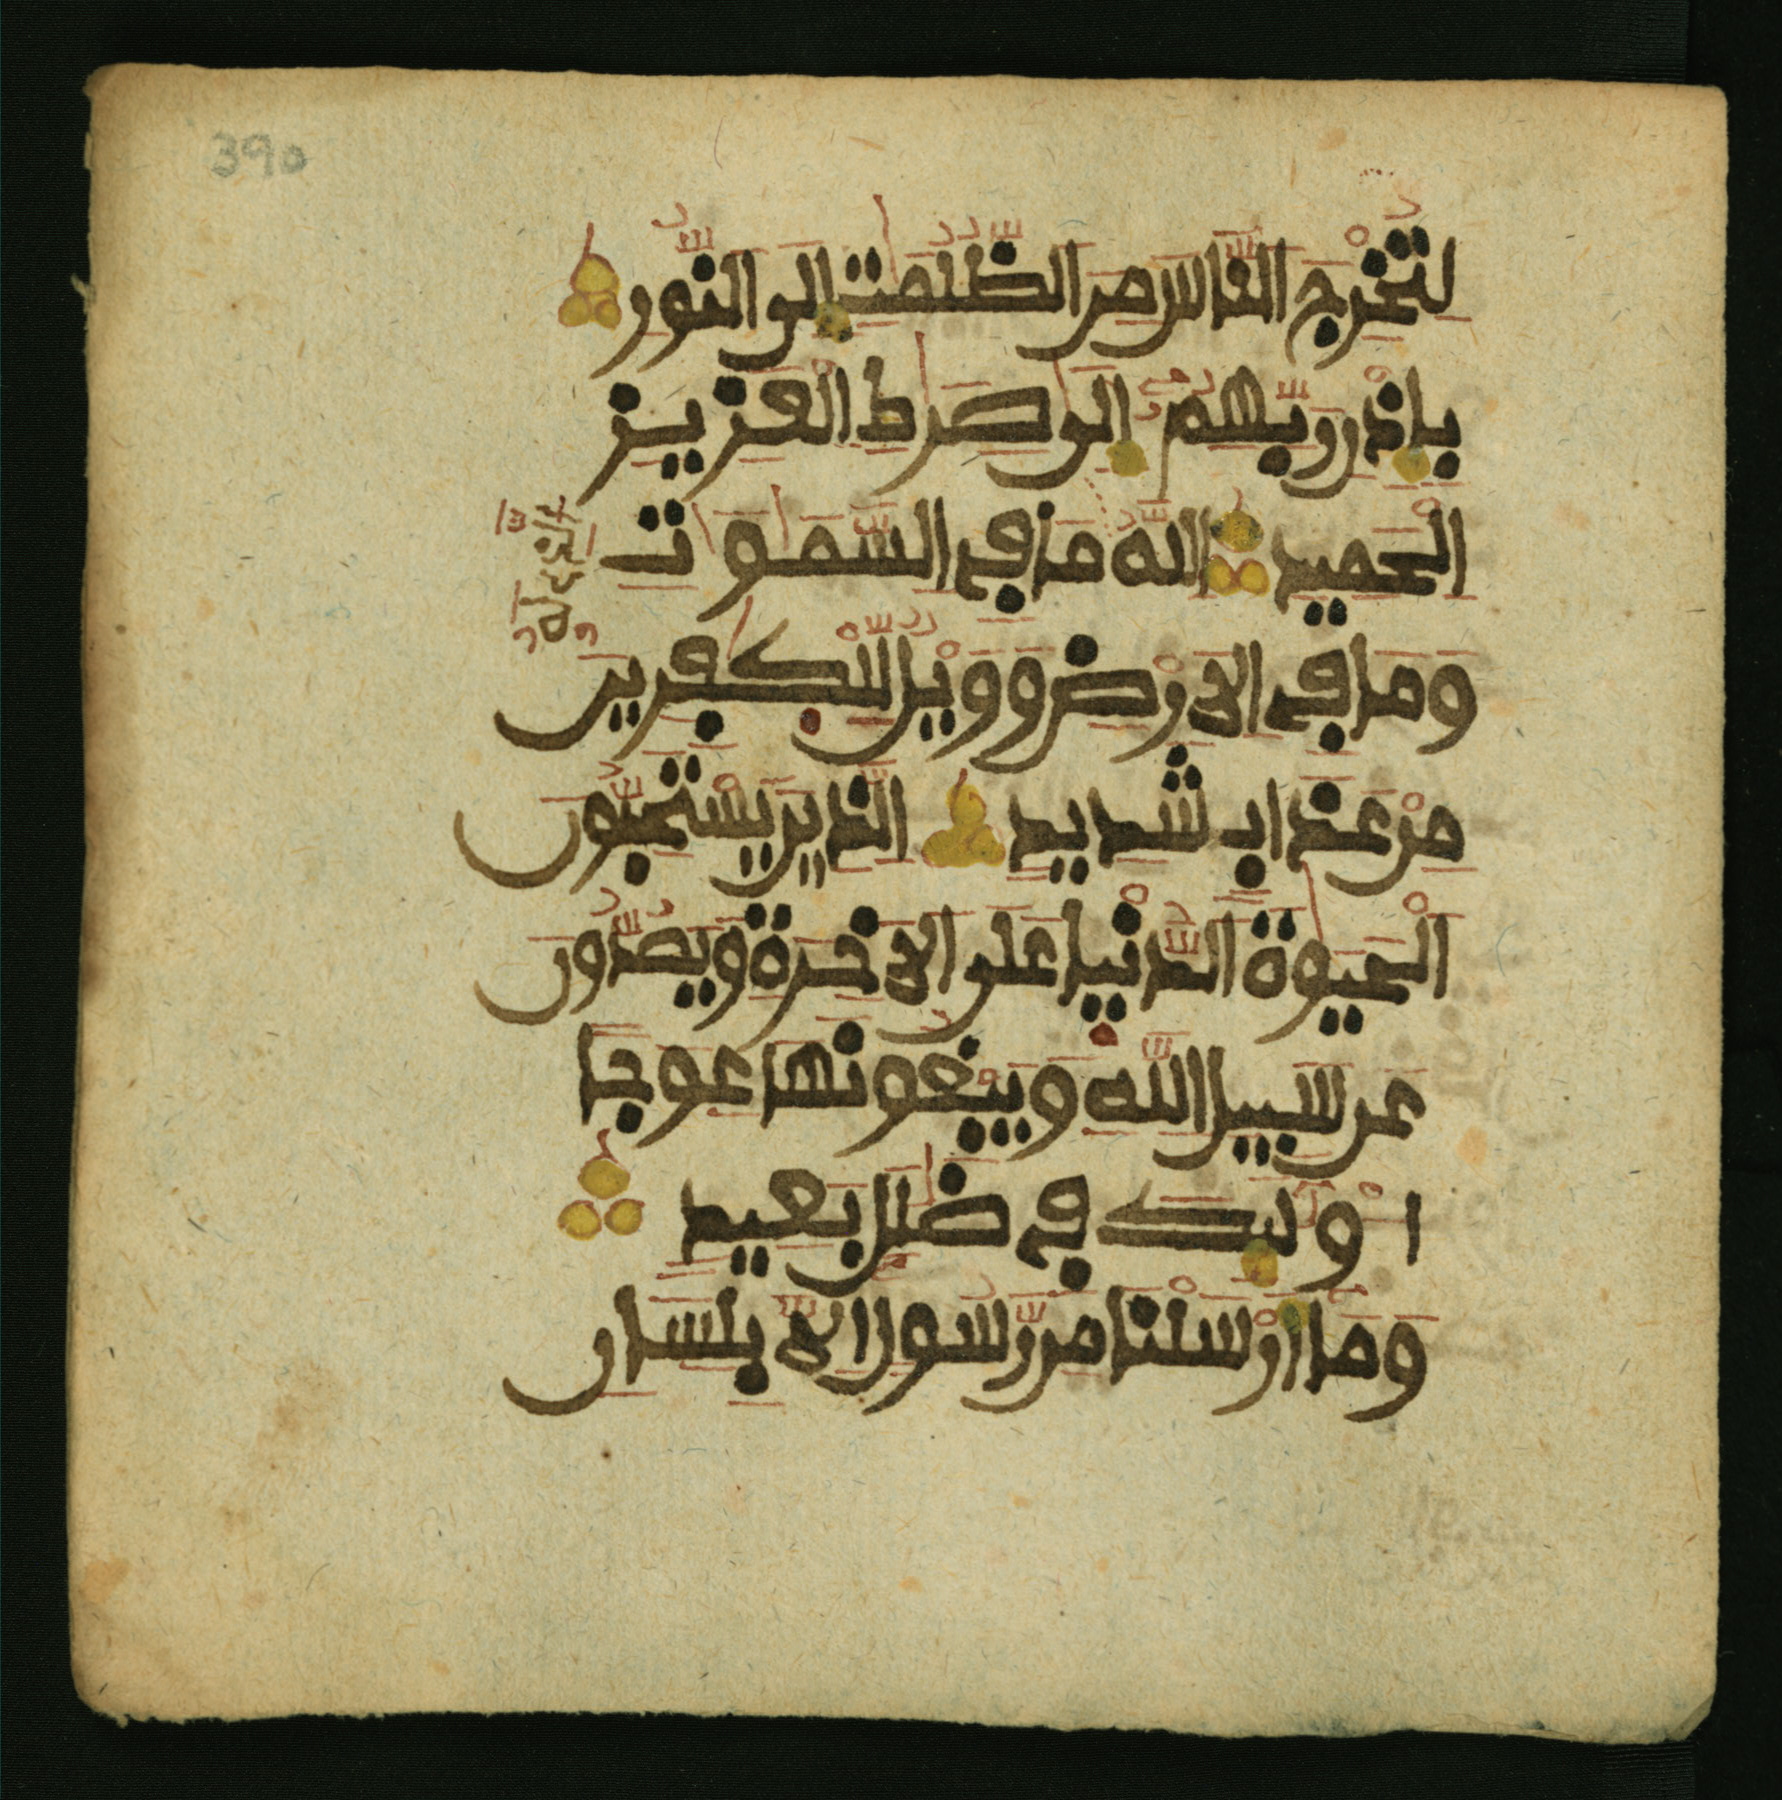 390
لتخرج الناس من الظلمت الى النور
باذن ربهم الى صرط العزيز
الحميد الله ما في السموت
الذي له
وما في الارض وويل للكفرين
من عذاب شديد الذين يستحبون
الحيوة الدنيا على الاخرة ويصدون
عن سبيل الله ويبغونها عوجا
اولئك في ضلل بعيد
وما ارسلنا من رسول الا بلسان